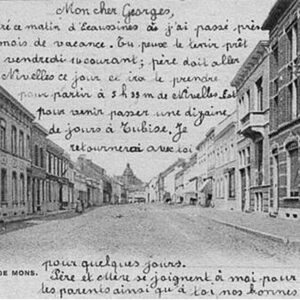 Mon cher Georges,
ce matin d'Ecaussines où j'ai passé près
mois de vacance. Tu peux te tenir prêt
vendredi 16 courant; père doit aller
Nivelles ce jour et ira te prendre
pour partir à 5 h 35 m de Nivelles.
pour venir passer une dizaine
de jours à Tubise. Je
retournerai avec toi
DE MONS.
pour quelques jours.
Père et Mère se joignent à moi pour
les parents ainsi qu'à toi nos bonnes